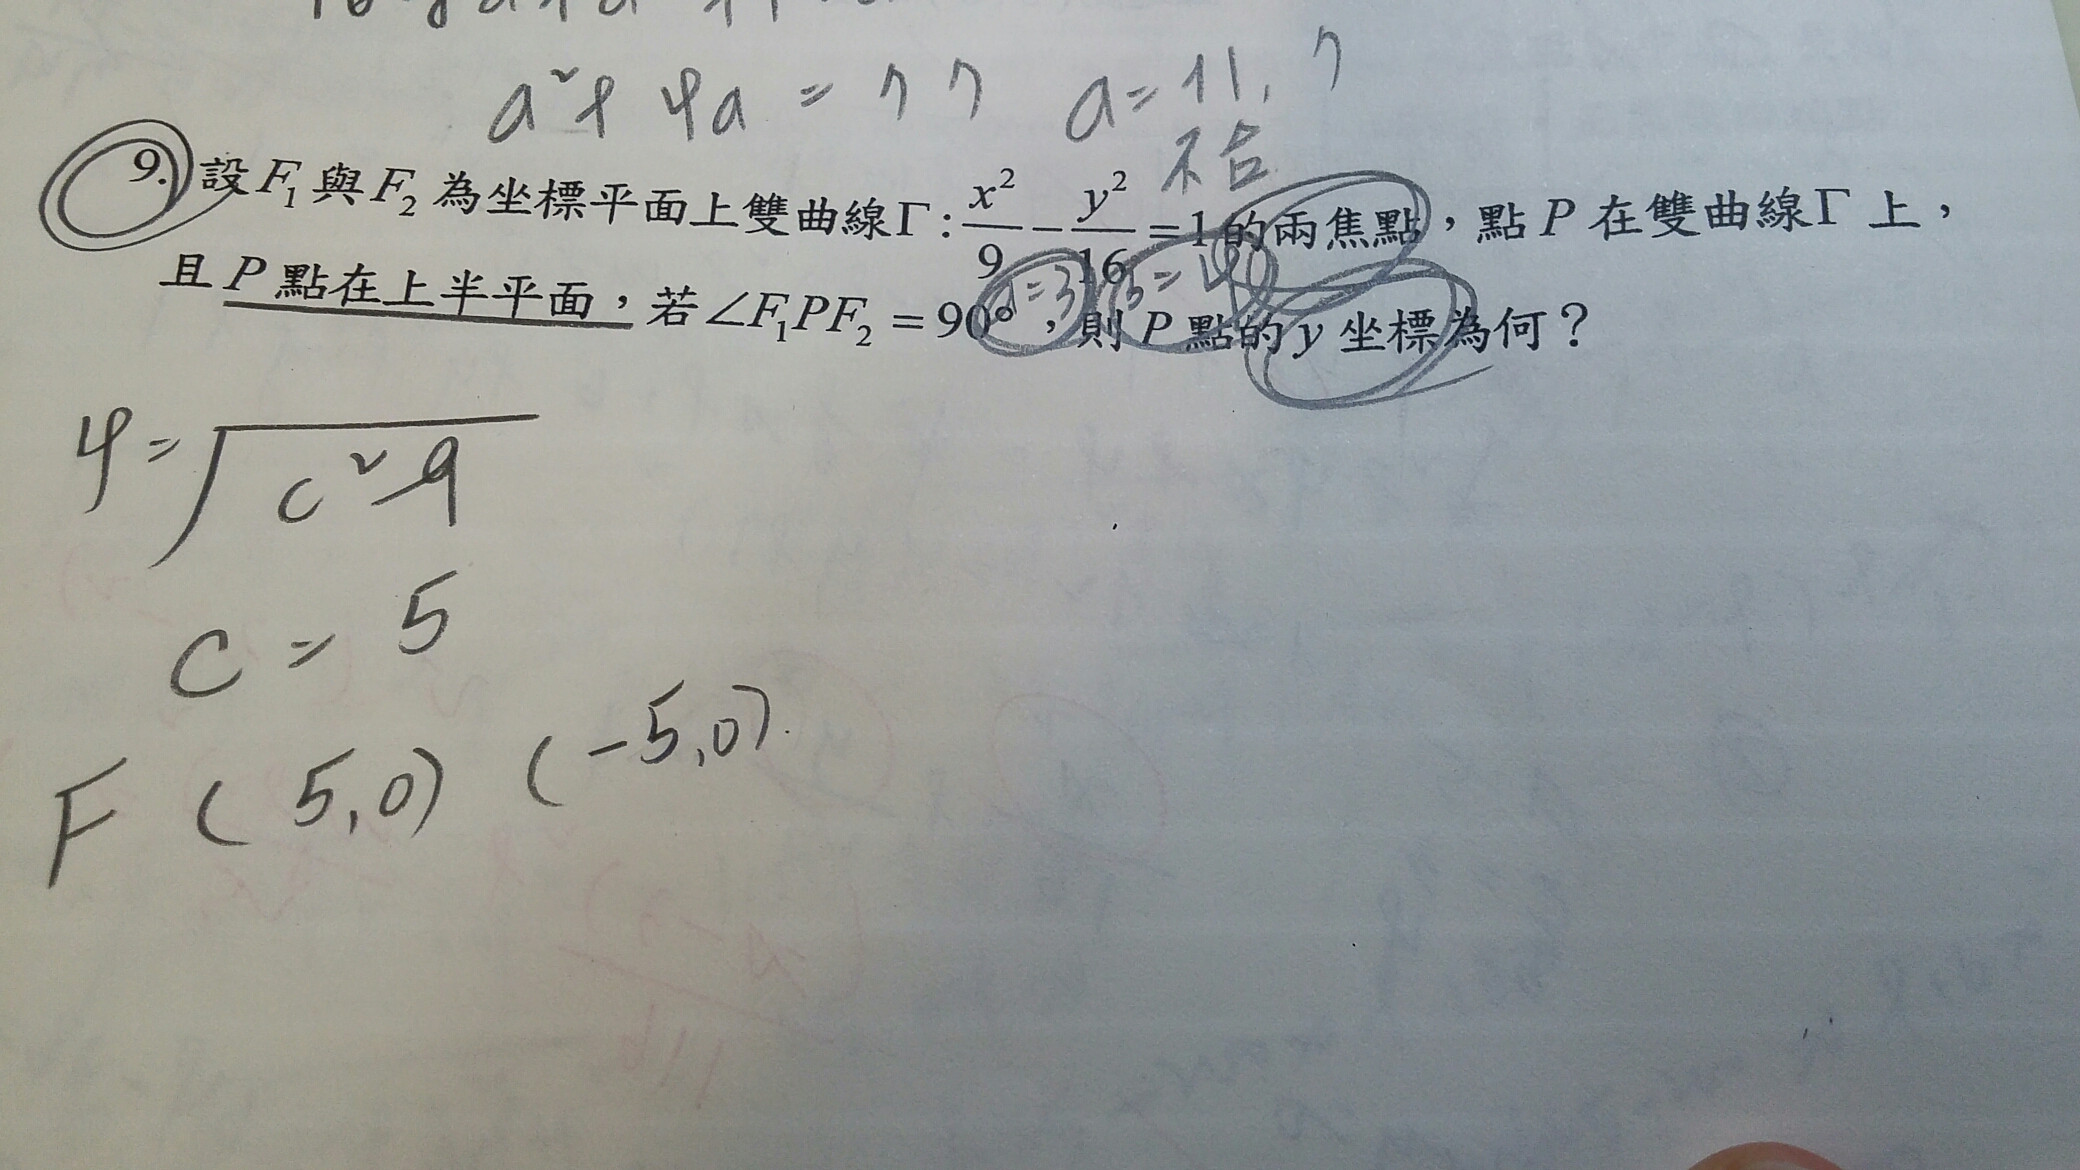 a²+4a = 77 a=11, 7
不合
9. 設F₁與F₂為坐標平面上雙曲線Γ: x²/9 − y²/16 = 1的兩焦點，點P在雙曲線Γ上，
a=3 b=4
且P點在上半平面，若∠F₁PF₂ = 90°，則P點的y坐標為何？
4=√c²-9
c = 5
F (5,0) (-5,0).